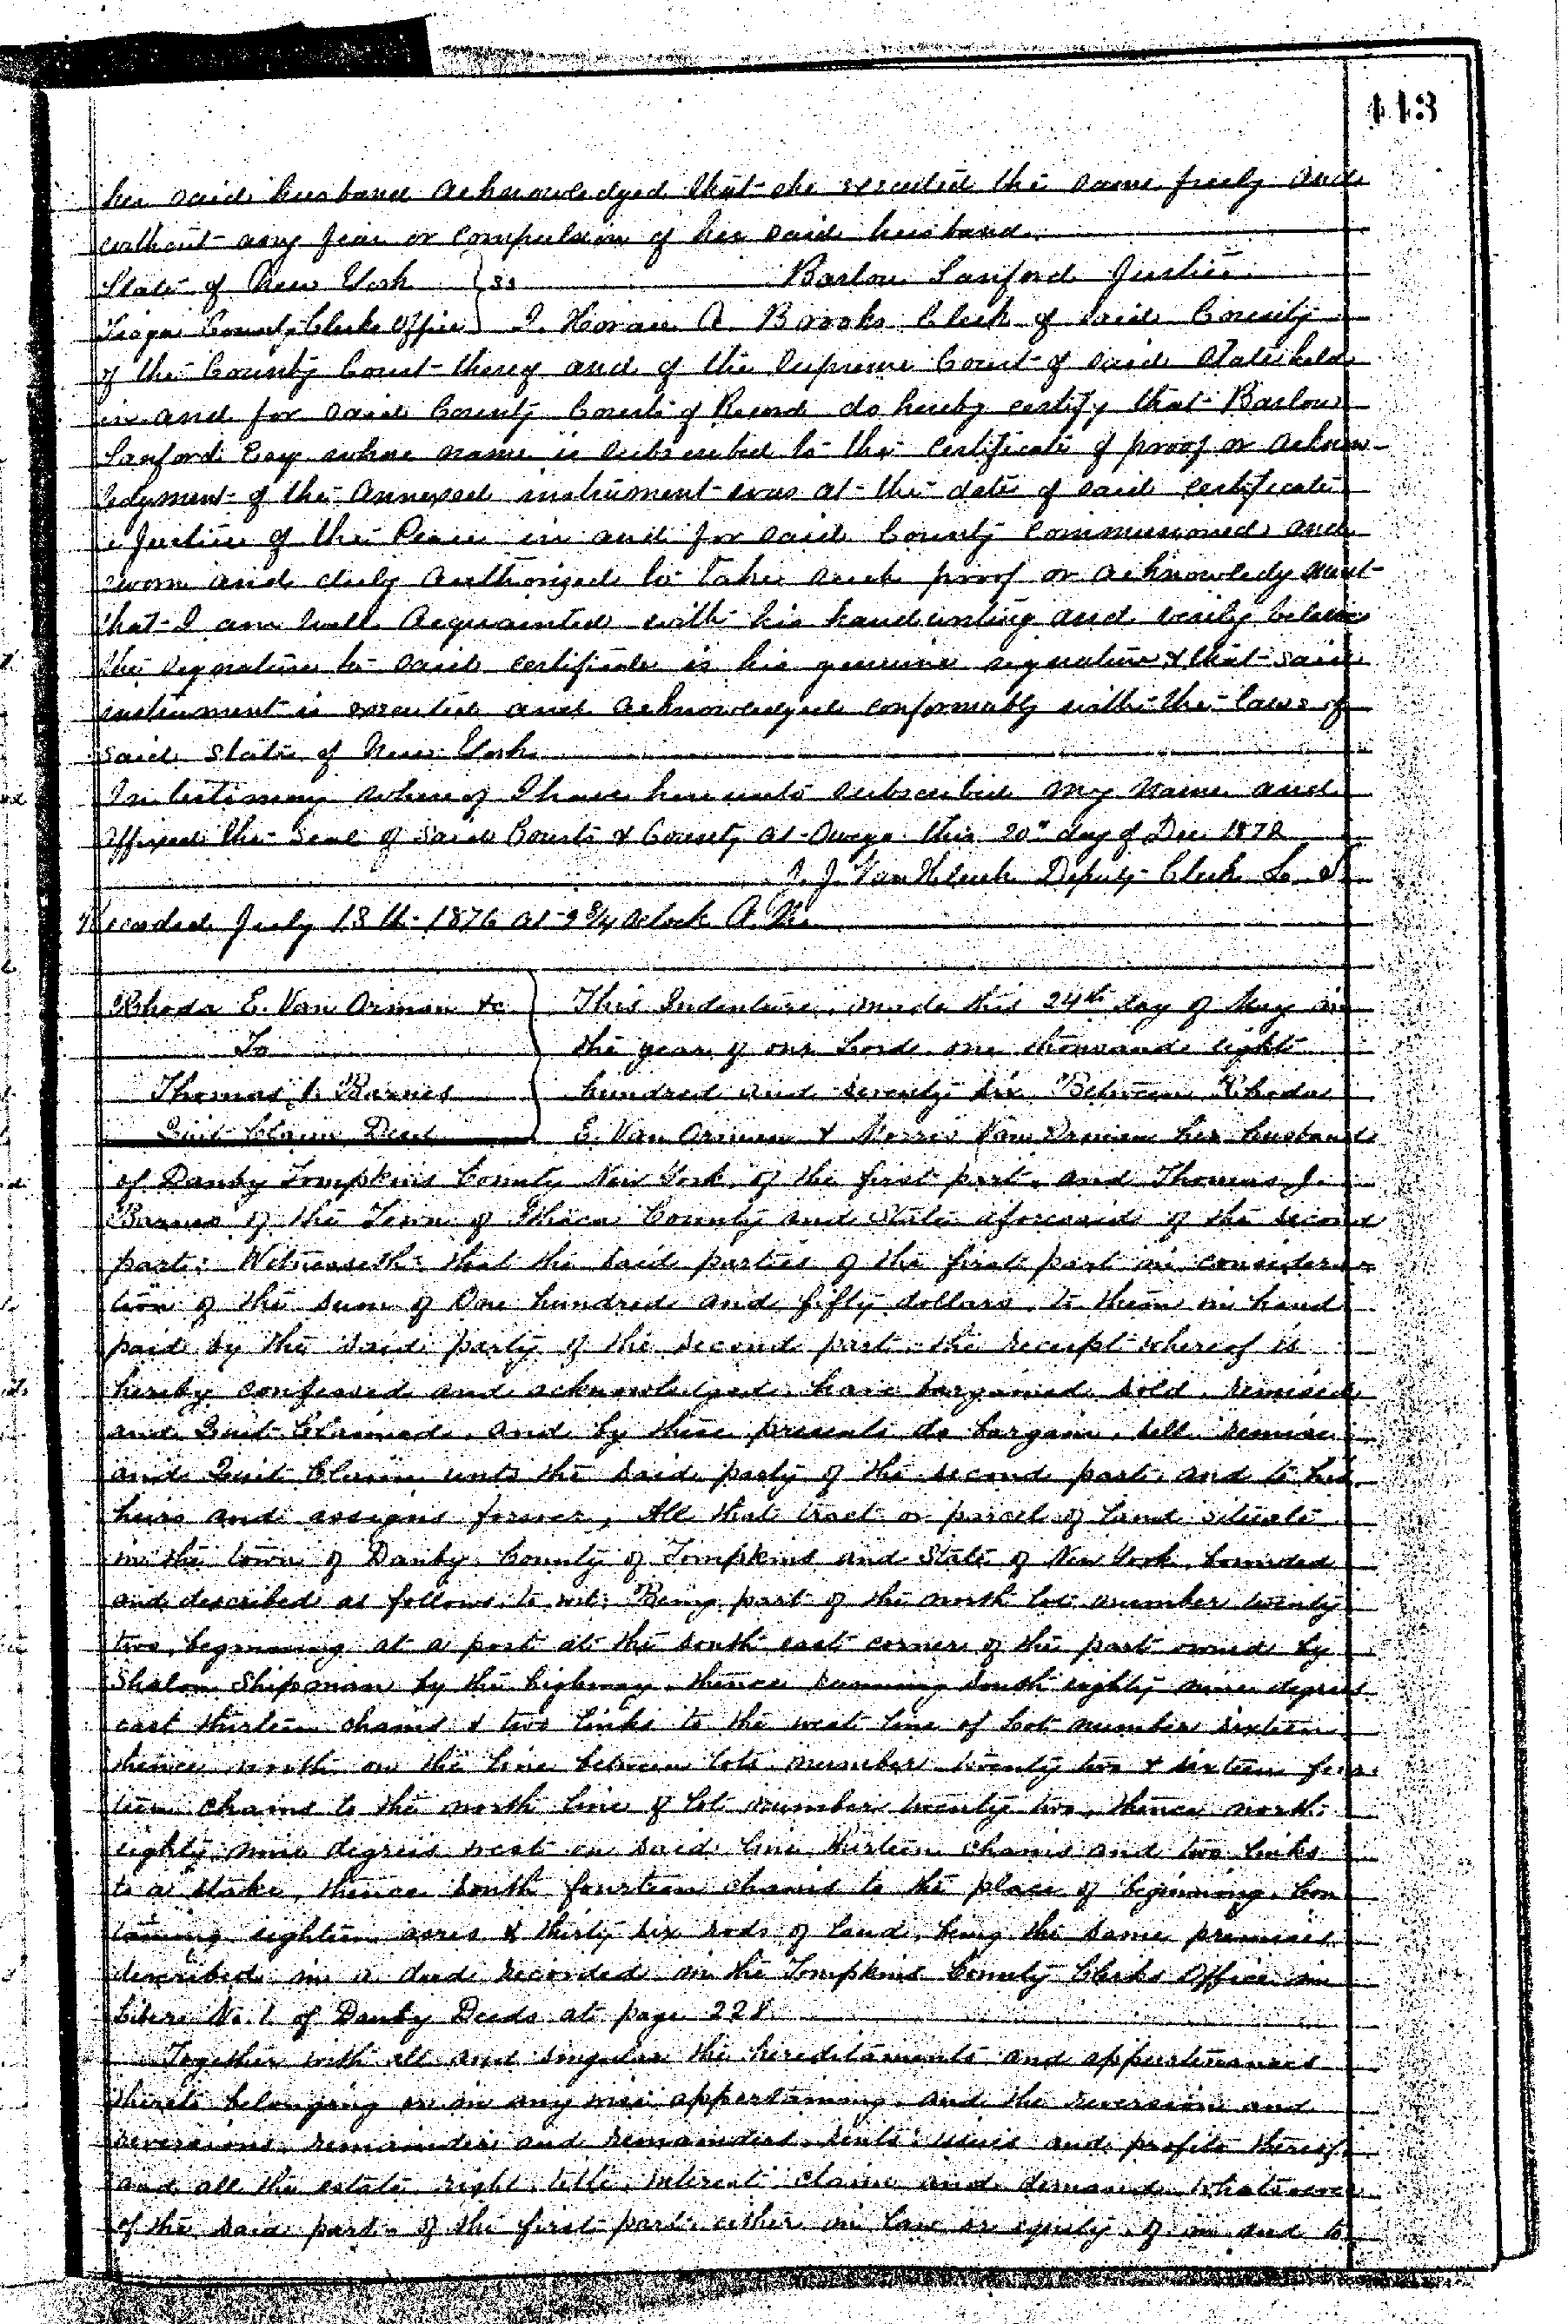 443
her said husband acknowledged that she executed the same freely and
without any fear or compulsion of her said husband.
State of New York } ss Barlow Sanford Justice
Tioga County Clerks Office } I. Horace A. Brooks Clerk of said County
of the County Court thereof and of the Supreme Court of said State held
in and for said County Courts of Record do hereby certify that Barlow
Sanford Esqr whose name is subscribed to the certificate of proof or acknow-
ledgment of the annexed instrument was at the date of said certificate
a Justice of the Peace in and for said County commissioned and
sworn and duly authorized to take such proof or acknowledgment
that I am well acquainted with his handwriting and verily believe
the signature to said certificate is his genuine signature & that said
instrument is executed and acknowledged conformably with the laws of
said State of New York
In testimony whereof I have hereunto subscribed my name and
affixed the seal of said Courts & County at Owego this 20" day of Dec 1872
J. Van Kleeck Deputy Clerk L. S.
Recorded July 13th 1876 at 9 3/4 oclock A. M.
Rhoda E. Van Orman &c } This Indenture, made this 24th day of May in
To the year of our Lord one thousand eight
Thomas J. Barnes hundred and seventy six Between Rhoda
Quit Claim Deed E. Van Orman & Morris Van Orman her husband
of Danby Tompkins County New York, of the first part, and Thomas J.
Barnes of the Town of Ithaca County and State aforesaid of the second
part: Witnesseth: that the said parties of the first part in considera-
tion of the sum of One hundred and fifty dollars, to them in hand
paid by the said party of the second part the receipt whereof is
hereby confessed and acknowledged, have bargained, sold, remised
and Quit Claimed, and by these presents do bargain, sell remise
and Quit Claim unto the said party of the second part, and to his
heirs and assigns forever, All that tract or parcel of land situate
in the town of Danby, County of Tompkins and State of New York, bounded
and described as follows, to wit: Being part of the north lot number twenty
two, beginning at a post at the south east corner of the part owned by
Shipman by the highway, thence running south eighty nine degrees
east thirteen chains & two links to the west line of Lot number sixteen
thence north on the line between lots number twenty two & sixteen four-
teen chains to the north line of lot number twenty two, thence north
eighty nine degrees west on said line thirteen chains and two links
to a stake, thence south fourteen chains to the place of beginning, con
taining eighteen acres & thirty six rods of land, being the same premises
described in a deed recorded in the Tompkins County Clerks Office in
Liber No. 1 of Danby Deeds at page 228
Together with all and singular the hereditaments and appurtenances
thereto belonging or in any wise appertaining, and the reversion and
reversions, remainder and remainders, rents, issues and profits thereof
and all the estate, right, title, interest, claim and demand whatsoever
of the said part of the first part, either in law or equity, of in and to